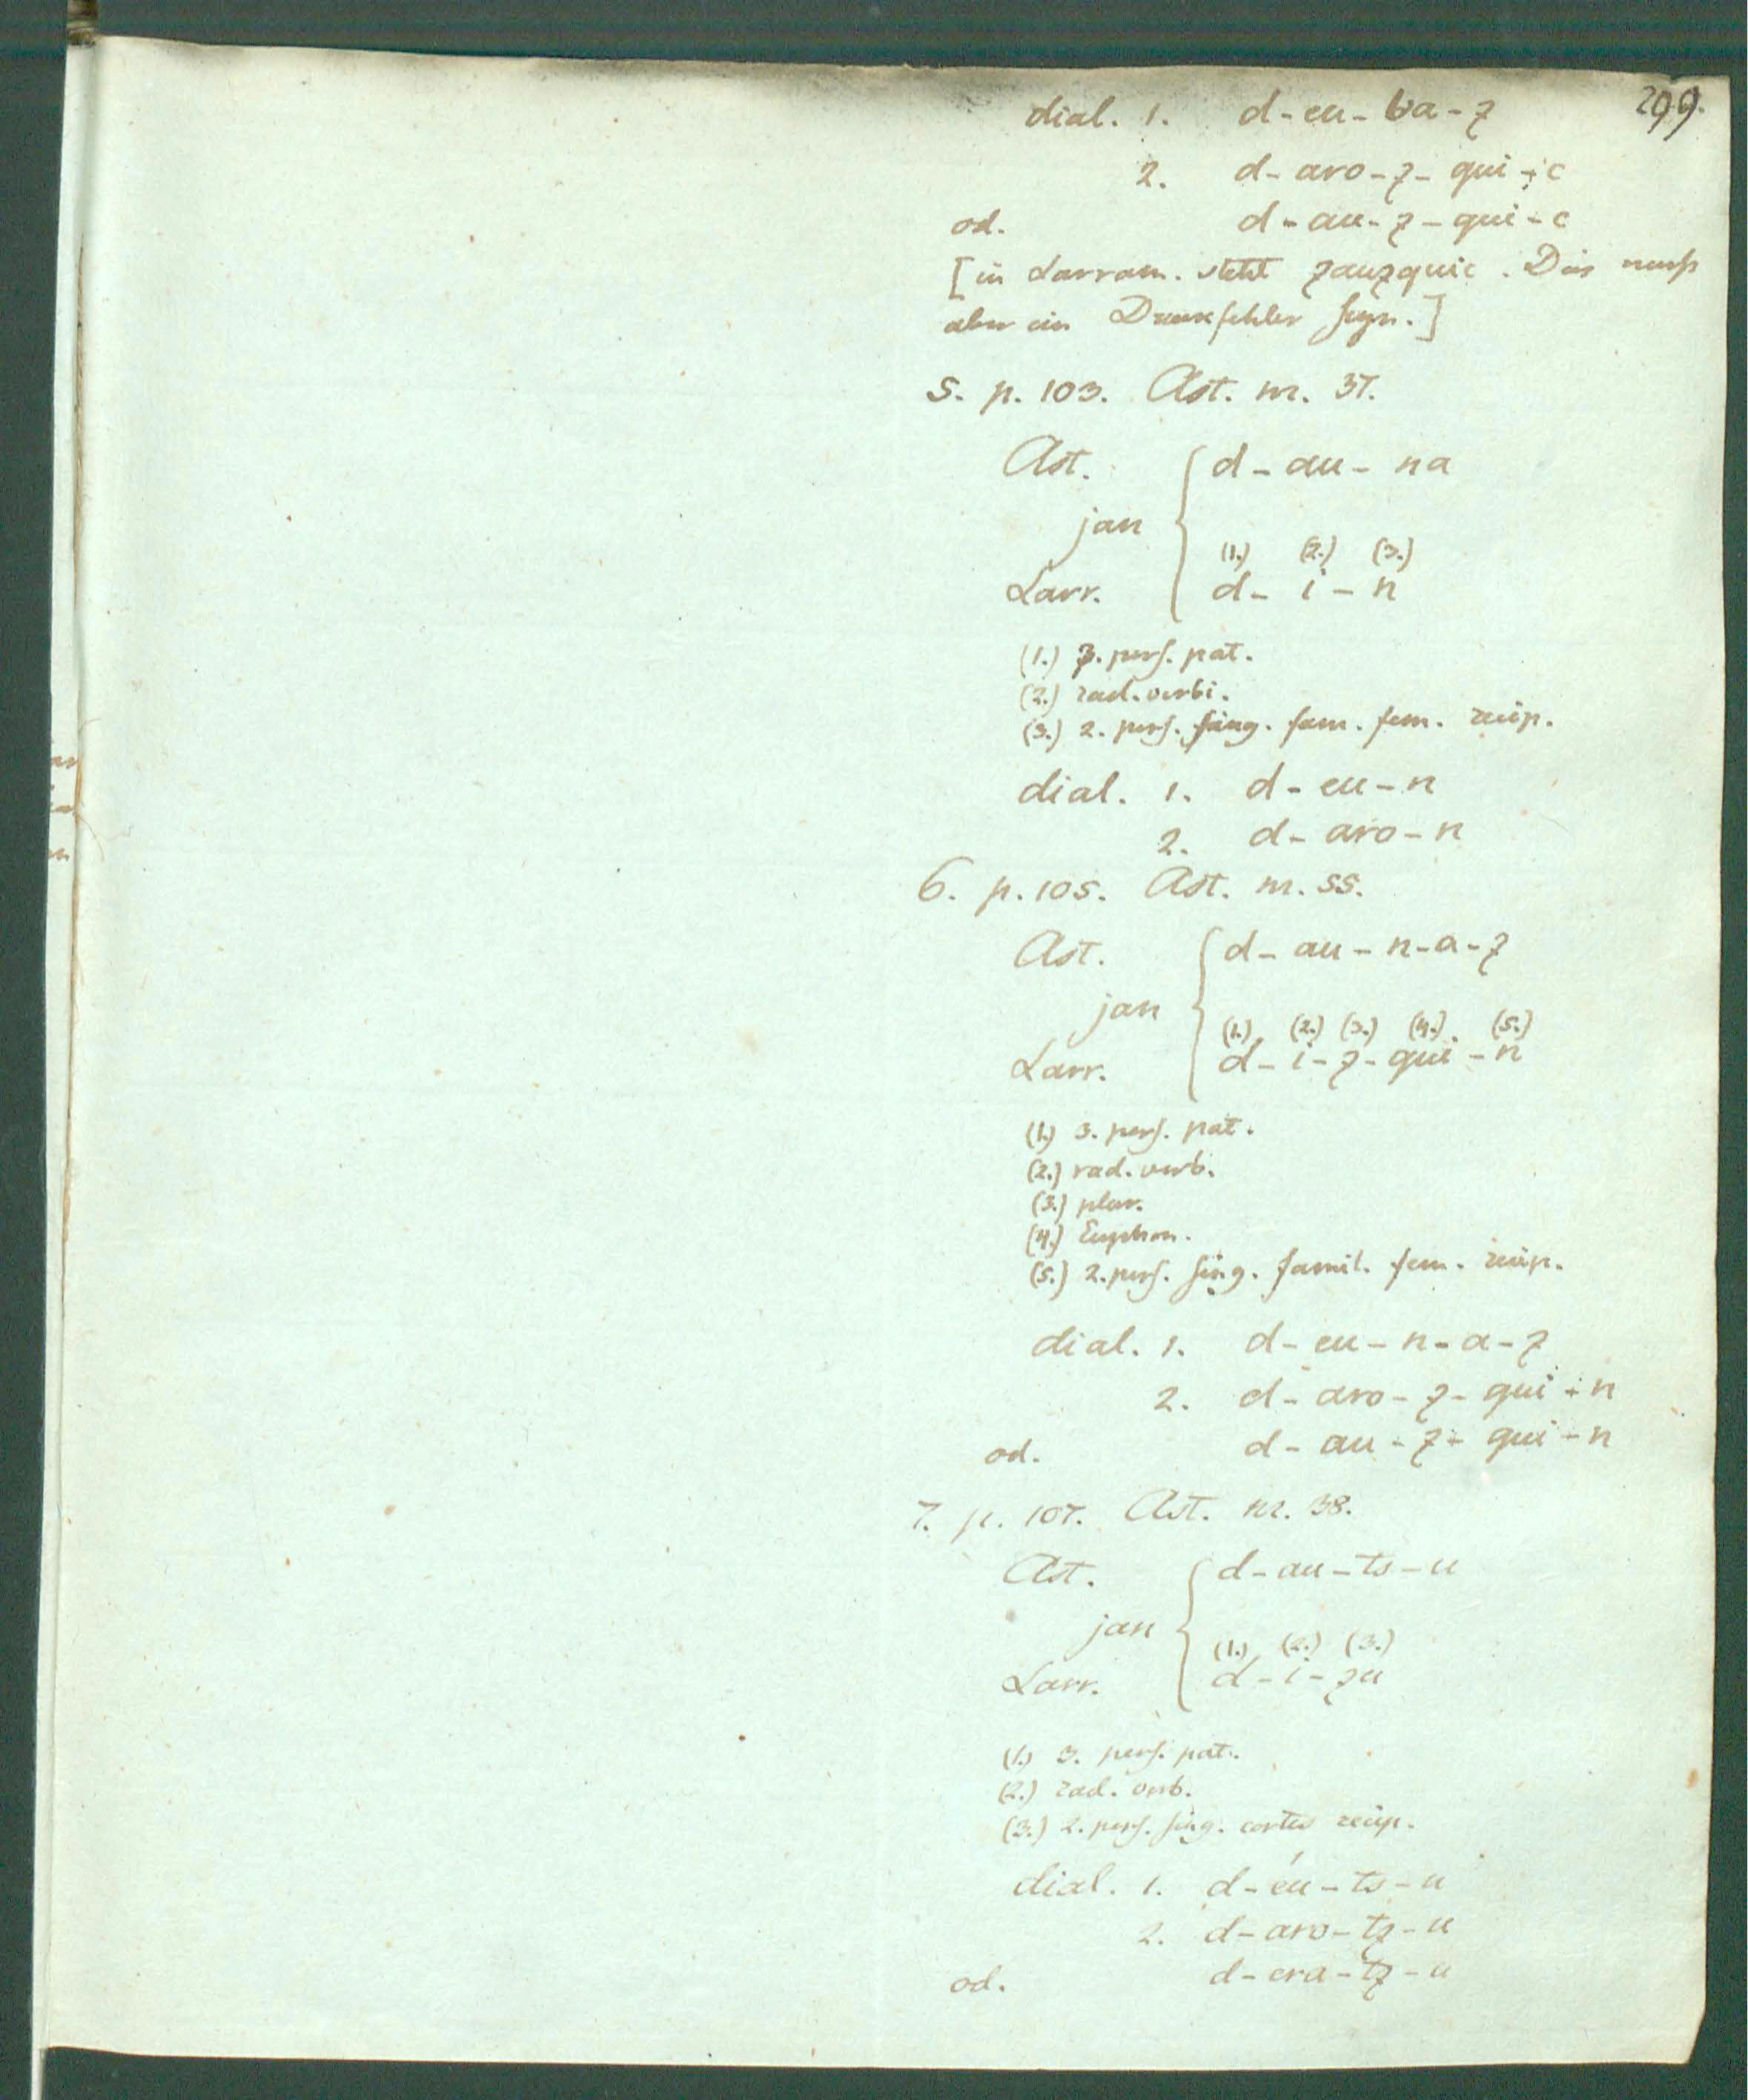 299.
dial. 1. d-eu-ba-z
2. d-aro-z-qui-c
od. d-au-z-qui-c
[in Larram. steht zauzquic. Dies muß
aber ein Druckfehler seyn.]
5. p. 103. Ast. nr. 37.
Ast. d-au-na
jan
(1.) (2.) (3.)
Larr. d-i-n
(1.) 3. pers. pat.
(2.) rad. verbi.
(3.) 2. pers. sing. fam. fem. recip.
dial. 1. d-eu-n
2. d-aro-n
6. p. 105. Ast. nr. 55.
Ast. d-au-n-a-z
jan
(1.) (2.) (3.) (4.) (5.)
Larr. d-i-z-qui-n
(1.) 3. pers. pat.
(2.) rad. verb.
(3.) plur.
(4.) Euphon.
(5.) 2. pers. sing. famil. fem. recip.
dial. 1. d-eu-n-a-z
2. d-aro-z-qui-n
od. d-au-z-qui-n
7. p. 107. Ast. nr. 38.
Ast. d-au-ts-u
jan
(1.) (2.) (3.)
Larr. d-i-zu
(1.) 3. pers. pat.
(2.) rad. verb.
(3.) 2. pers. sing. cortes recip.
dial. 1. d-éu-ts-u
2. d-aro-tz-u
od. d-era-tz-u